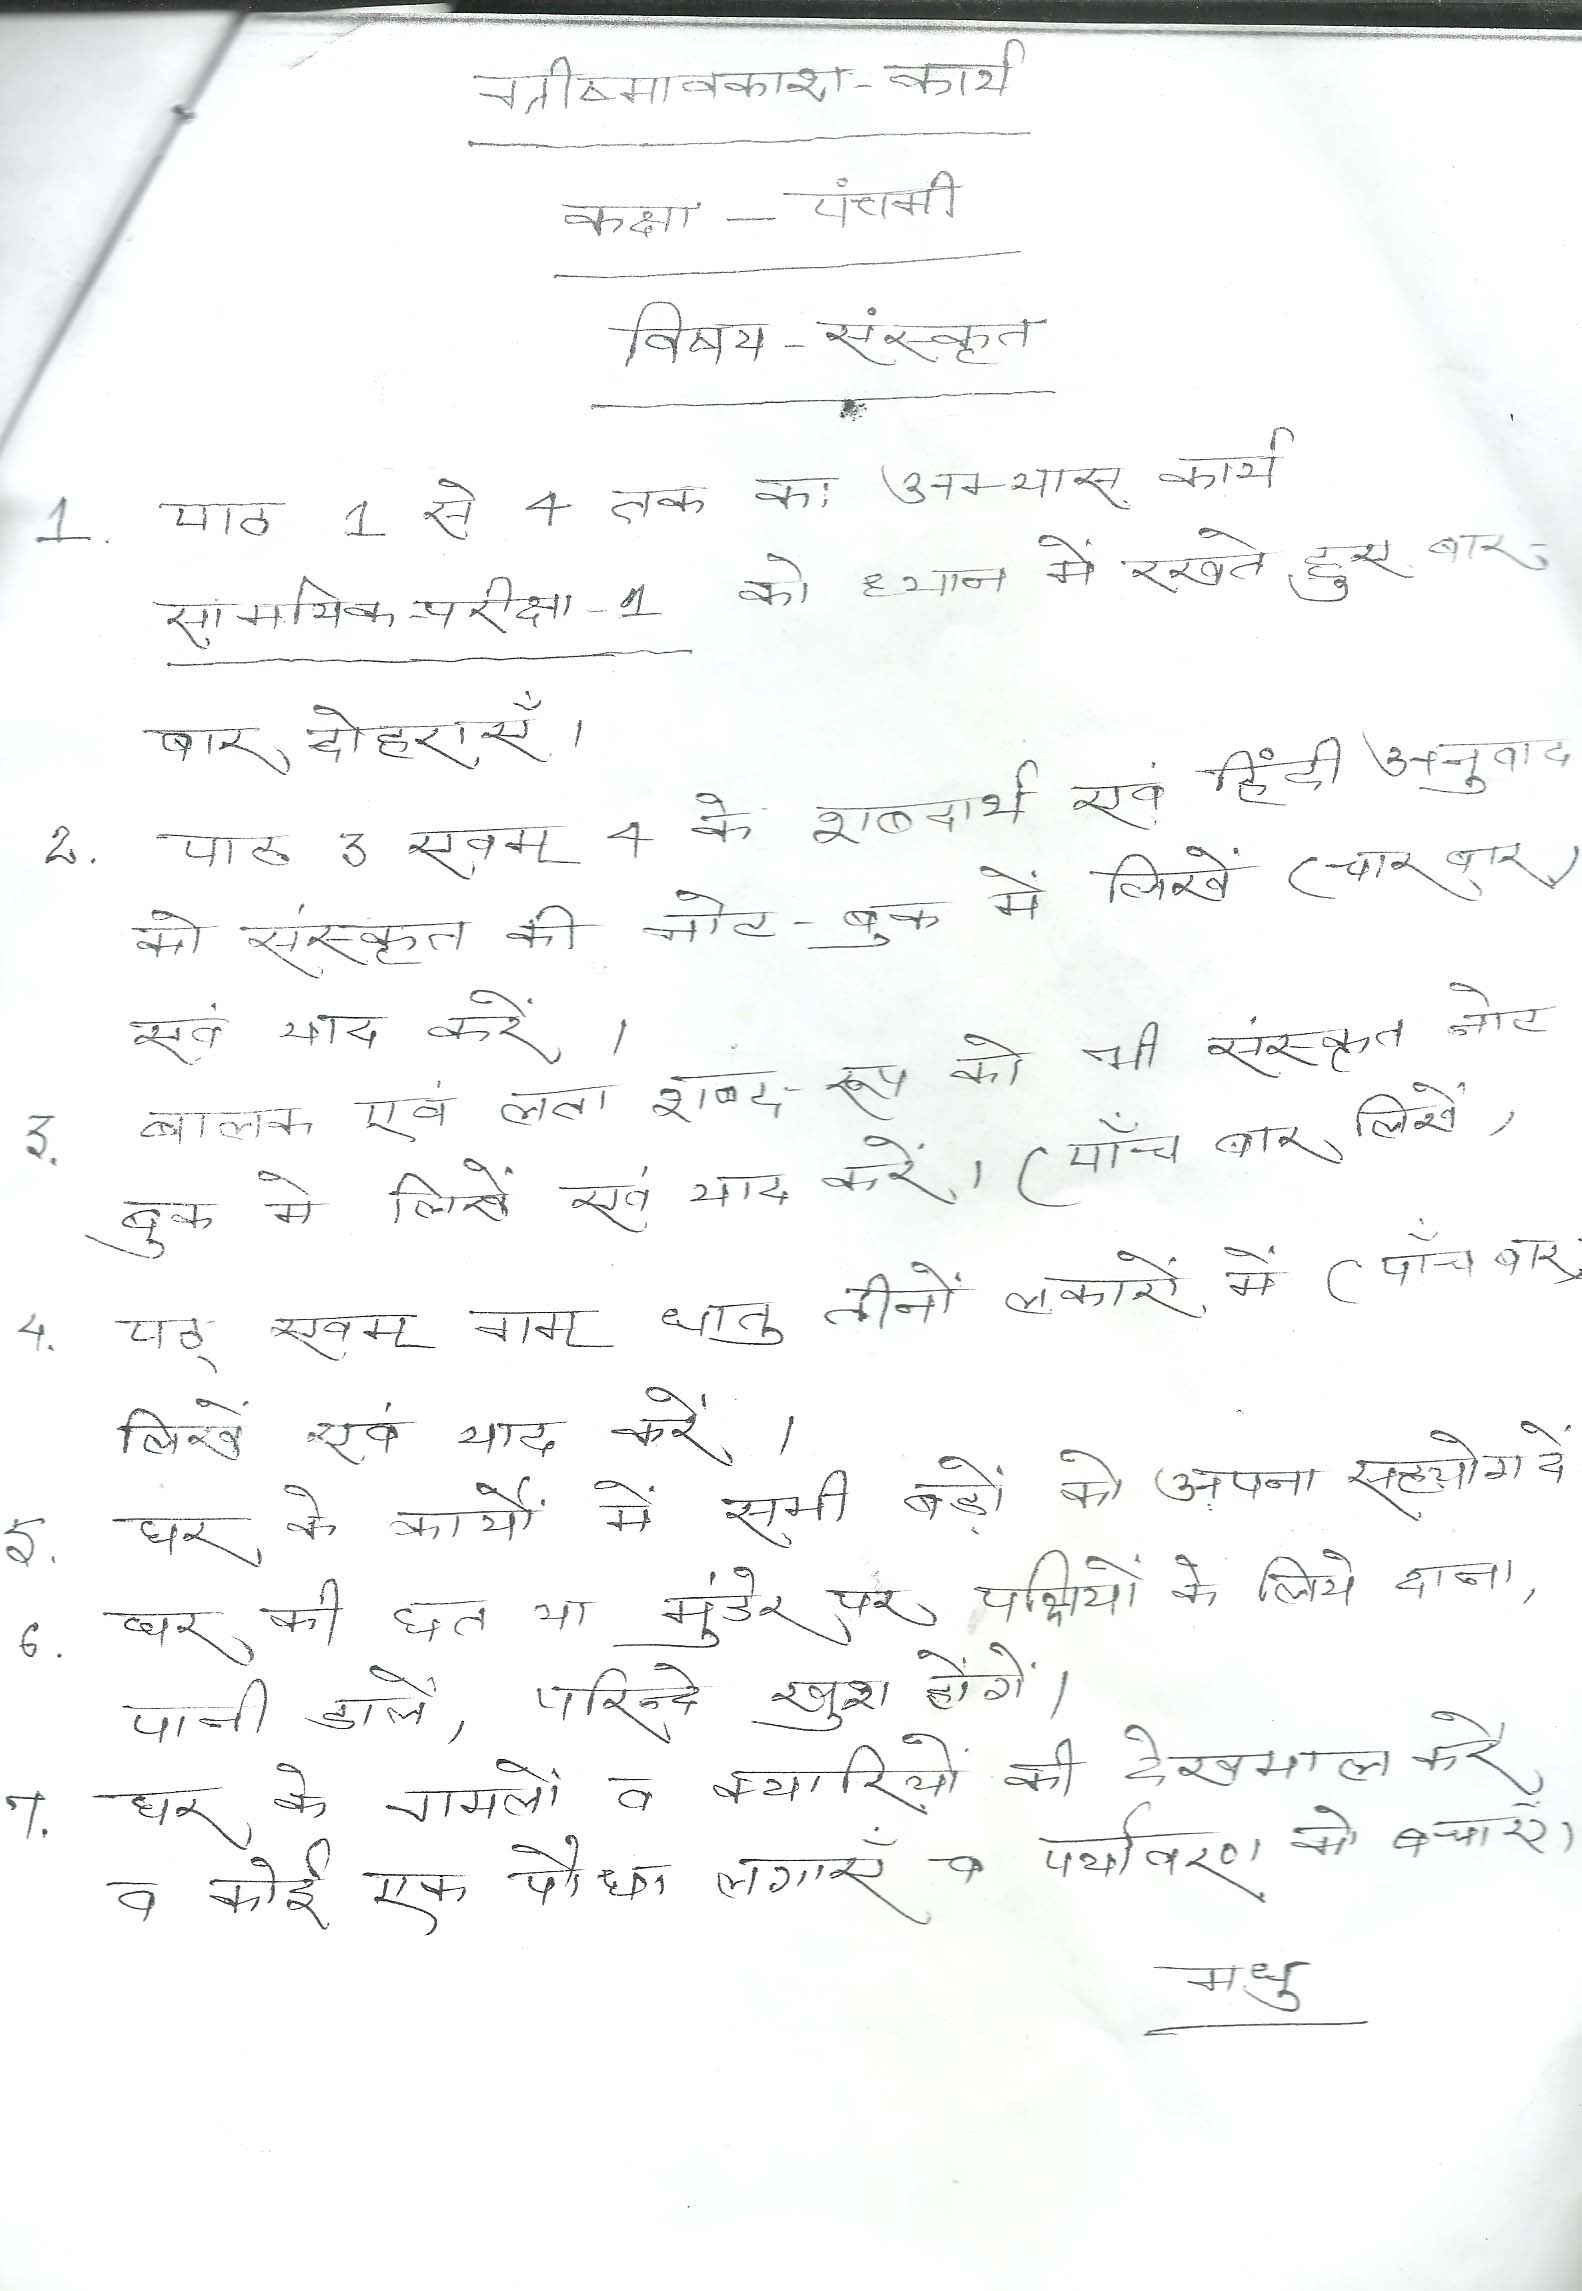 ग्रीष्मावकाश-कार्य
कक्षा - पंचमी
विषय - संस्कृत
1. पाठ 1 से 4 तक का अभ्यास कार्य
सामयिक परीक्षा-1 को ध्यान में रखते हुए बार-
बार दोहराएँ।
2. पाठ 3 एवम् 4 के शब्दार्थ एवं हिंदी अनुवाद
को संस्कृत की नोट-बुक में लिखें (चार बार)
एवं याद करें।
3. बालक एवं लता शब्द-रूप को भी संस्कृत नोट
बुक मे लिखें एवं याद करें। (पाँच बार लिखें)
4. पठ् एवम् गम् धातु तीनों लकारों में (पाँच बार)
लिखें एवं याद करें।
5. घर के कार्यों में सभी बड़ों को अपना सहयोग दें
6. घर की छत या मुंडेर पर पक्षियों के लिये दाना,
पानी डालें, परिन्दे खुश होंगें।
7. घर के गमलों व क्यारियों की देखभाल करें
व कोई एक पौधा लगाएँ व पर्यावरण को बचाएँ।
मधु